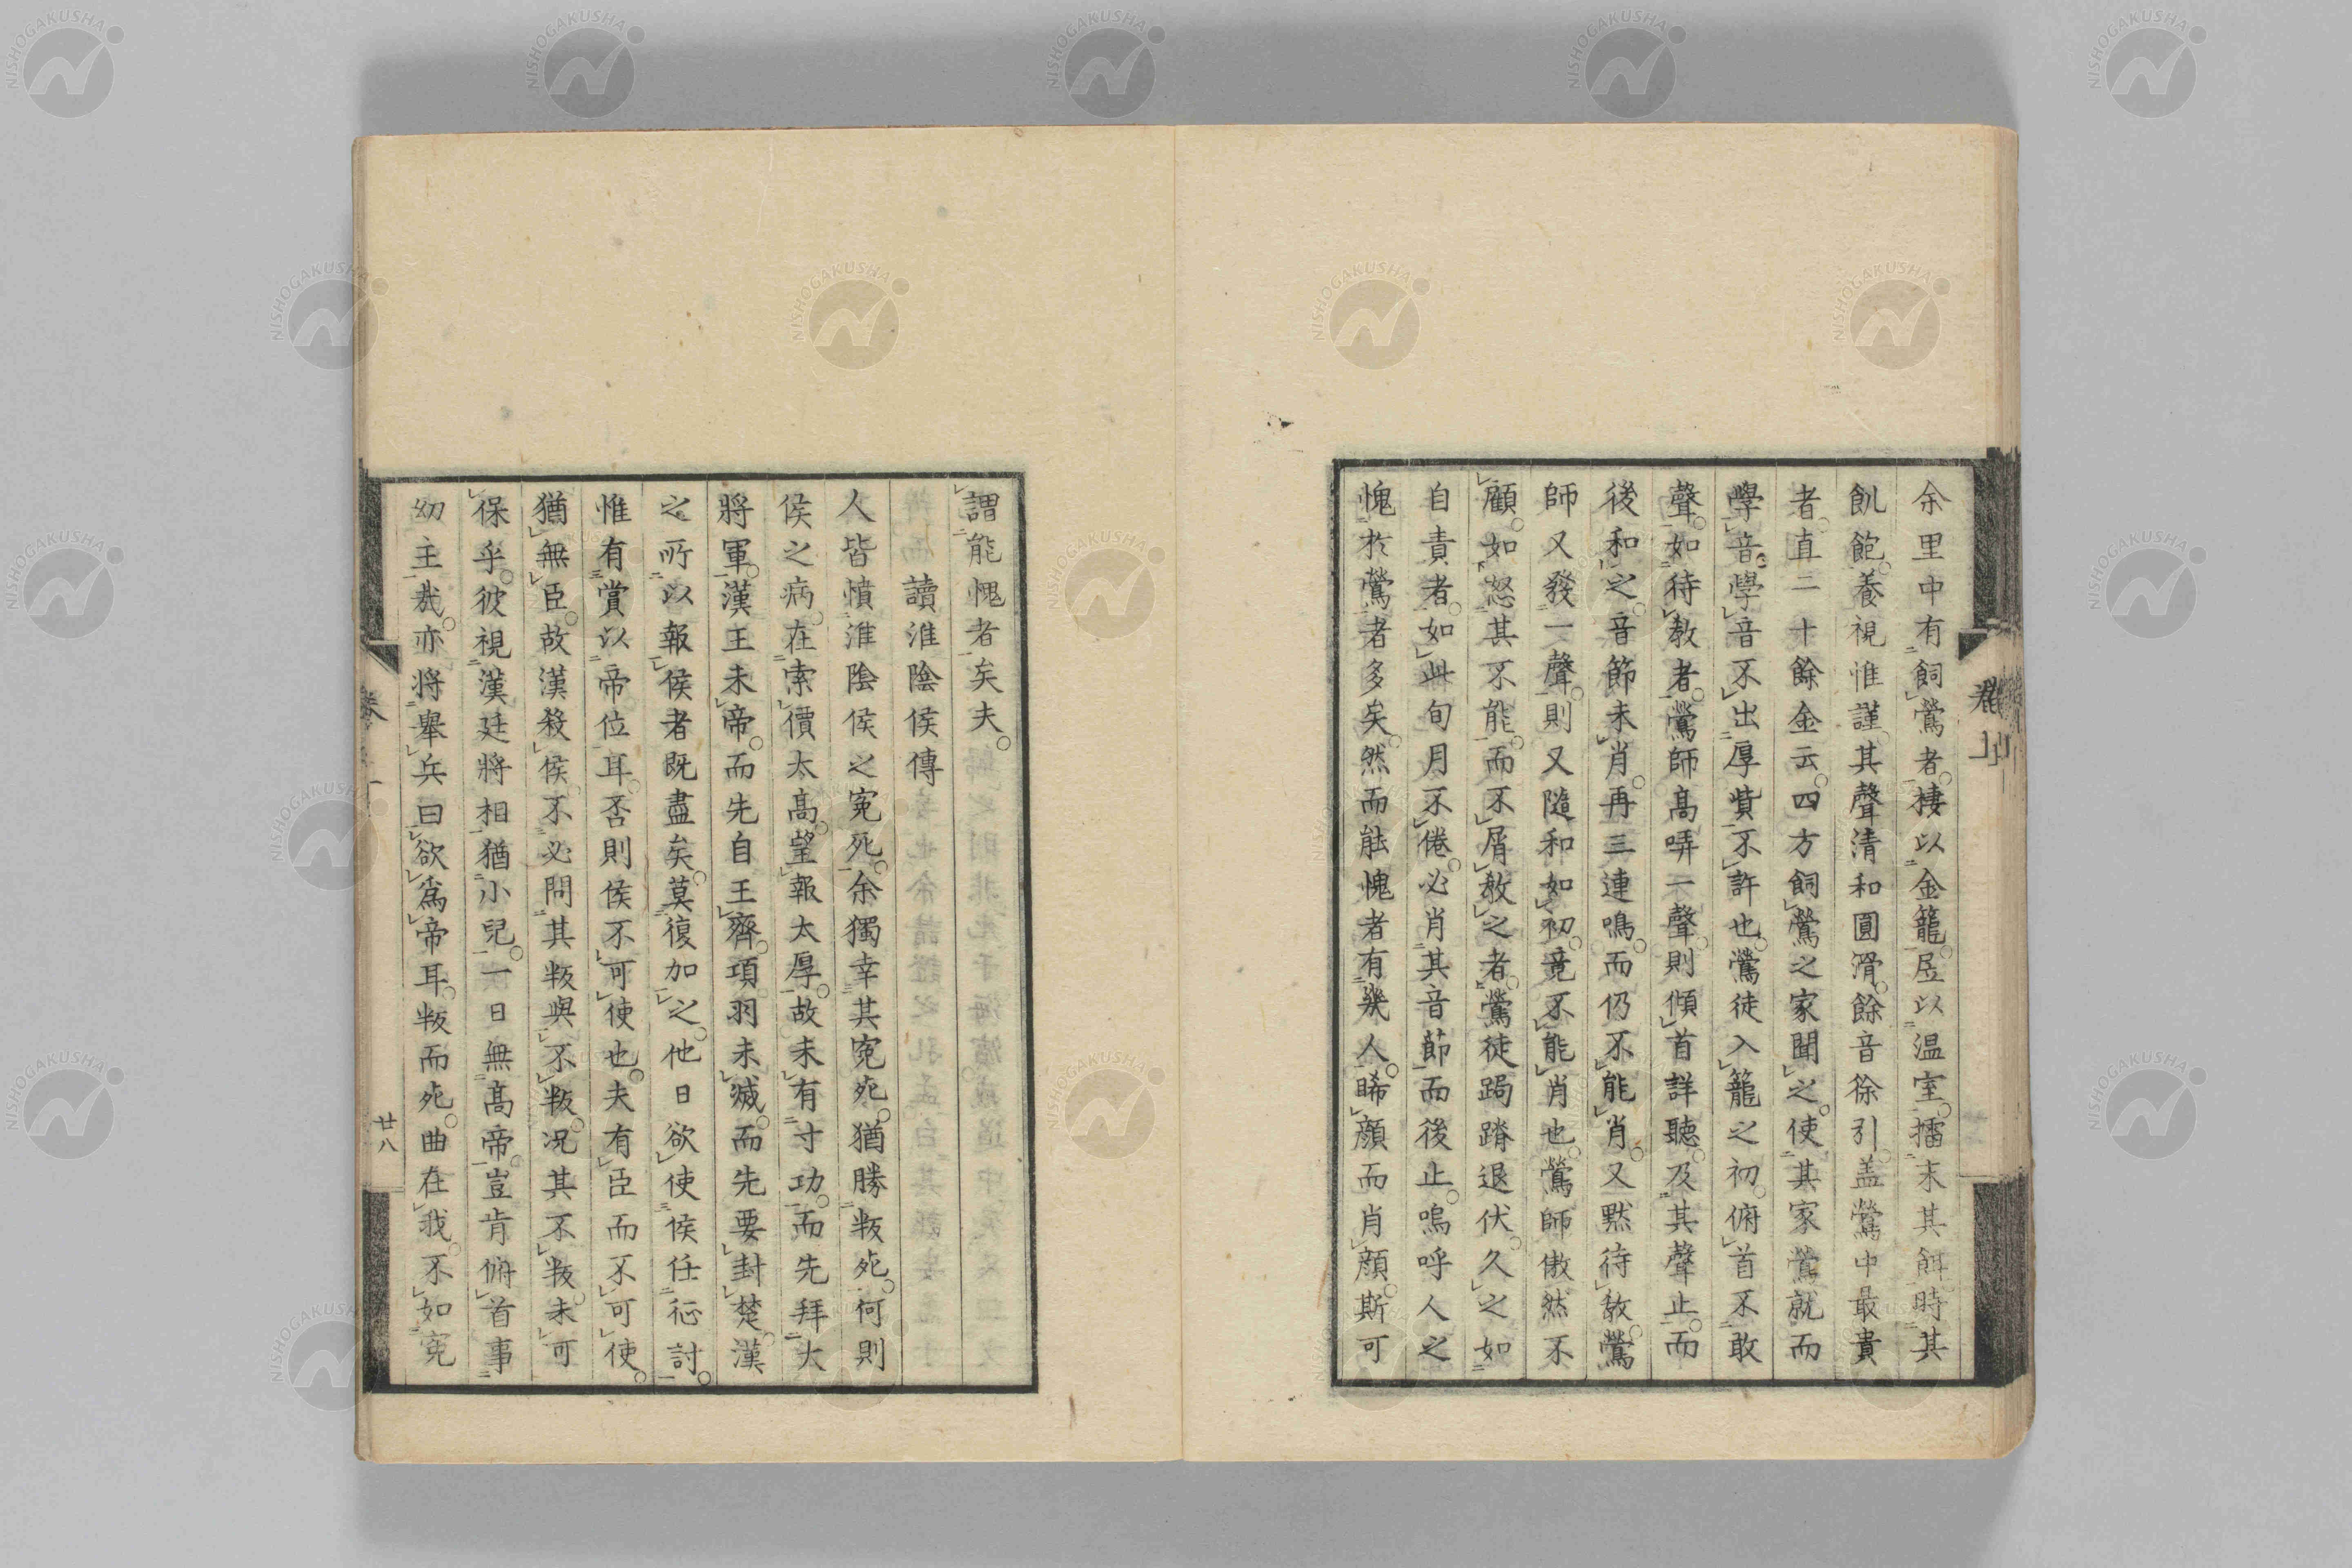 余里中有飼鶯者。棲以金籠。居以温室。擂末其餌。時其
飢飽。養視惟謹。其聲清和圓滑。餘音徐引。盖鶯中最貴
者。直二十餘金云。四方飼鶯之家聞之。使其家鶯就而
學音。學音不出厚貲。不許也。鶯徒入籠之初。俯首不敢
聲。如待教者。鶯師高哢一聲。則傾首詳聽。及其聲止。而
後和之。音節未肖。再三連鳴。而仍不能肖。又黙待教。鶯
師又發一聲。則又隨和如初。竟不能肖也。鶯師傲然不
顧。如怒其不能。而不屑教之者。鶯徒跼蹐退伏。久之如
自責者。如此旬月不倦。必肖其音節而後止。嗚呼人之
愧於鶯者多矣。然而能愧者有幾人。睎顔而肖顔。斯可
謂能愧者矣夫。
讀淮陰侯傳
人皆憤淮陰侯之寃死。余獨幸其寃死。猶勝叛死。何則
侯之病。在索價太高。望報太厚。故未有寸功。而先拜大
將軍。漢王未帝。而先自王齊。項羽未滅。而先要封楚。漢
之所以報侯者既盡矣。莫復加之。他日欲使侯任征討。
惟有賞以帝位耳。否則侯不可使也。夫有臣而不可使。
猶無臣。故漢殺侯。不必問其叛與不叛。况其不叛。未可
保乎。彼視漢廷將相。猶小兒。一日無高帝。豈肯俯首事
幼主哉。亦將舉兵曰。欲爲帝耳。叛而死。曲在我。不如寃
卷上
廿八
NISHOGAKUSHA